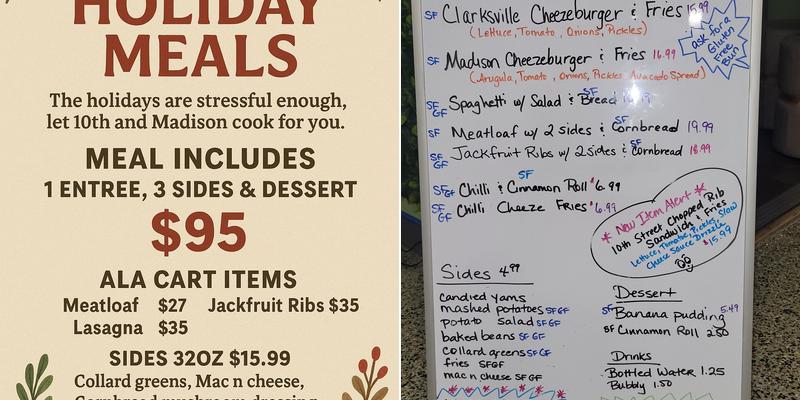 HOLIDAY
MEALS
The holidays are stressful enough,
let 10th and Madison cook for you.
MEAL INCLUDES
1 ENTREE, 3 SIDES & DESSERT
$95
ALA CART ITEMS
Meatloaf $27 Jackfruit Ribs $35
Lasagna $35
SIDES 32OZ $15.99
Collard greens, Mac n cheese,
SF Clarksville Cheezeburger & Fries 15.99
(Lettuce, Tomato, Onions, Pickles)
ask for a
Gluten
Free
Bun
SF Madison Cheezeburger & Fries 16.99
(Arugula, Tomato, Onions, Pickles, Avacado Spread)
SF
SF GF Spaghetti w/ Salad & Bread
SF
SF Meatloaf w/ 2 sides & Cornbread 19.99
SF
SF GF Jackfruit Ribs w/ 2 sides & Cornbread 18.99
SF
SF GF Chilli & Cinnamon Roll $6.99
SF GF Chilli Cheeze Fries $6.99
* New Item Alert *
10th Street Chopped Rib
Sandwich & Fries
Lettuce, Tomatoe, Pickles, Slaw
Cheese Sauce Drizzle
$15.99
Sides 4.99
candied yams
mashed potatoes SF GF
potato salad SF GF
baked beans SF GF
collard greens SF GF
fries SF GF
mac n cheese SF GF
Dessert
SF Banana pudding 5.49
SF Cinnamon Roll 2.50
Drinks
Bottled Water 1.25
Bubbly 1.50